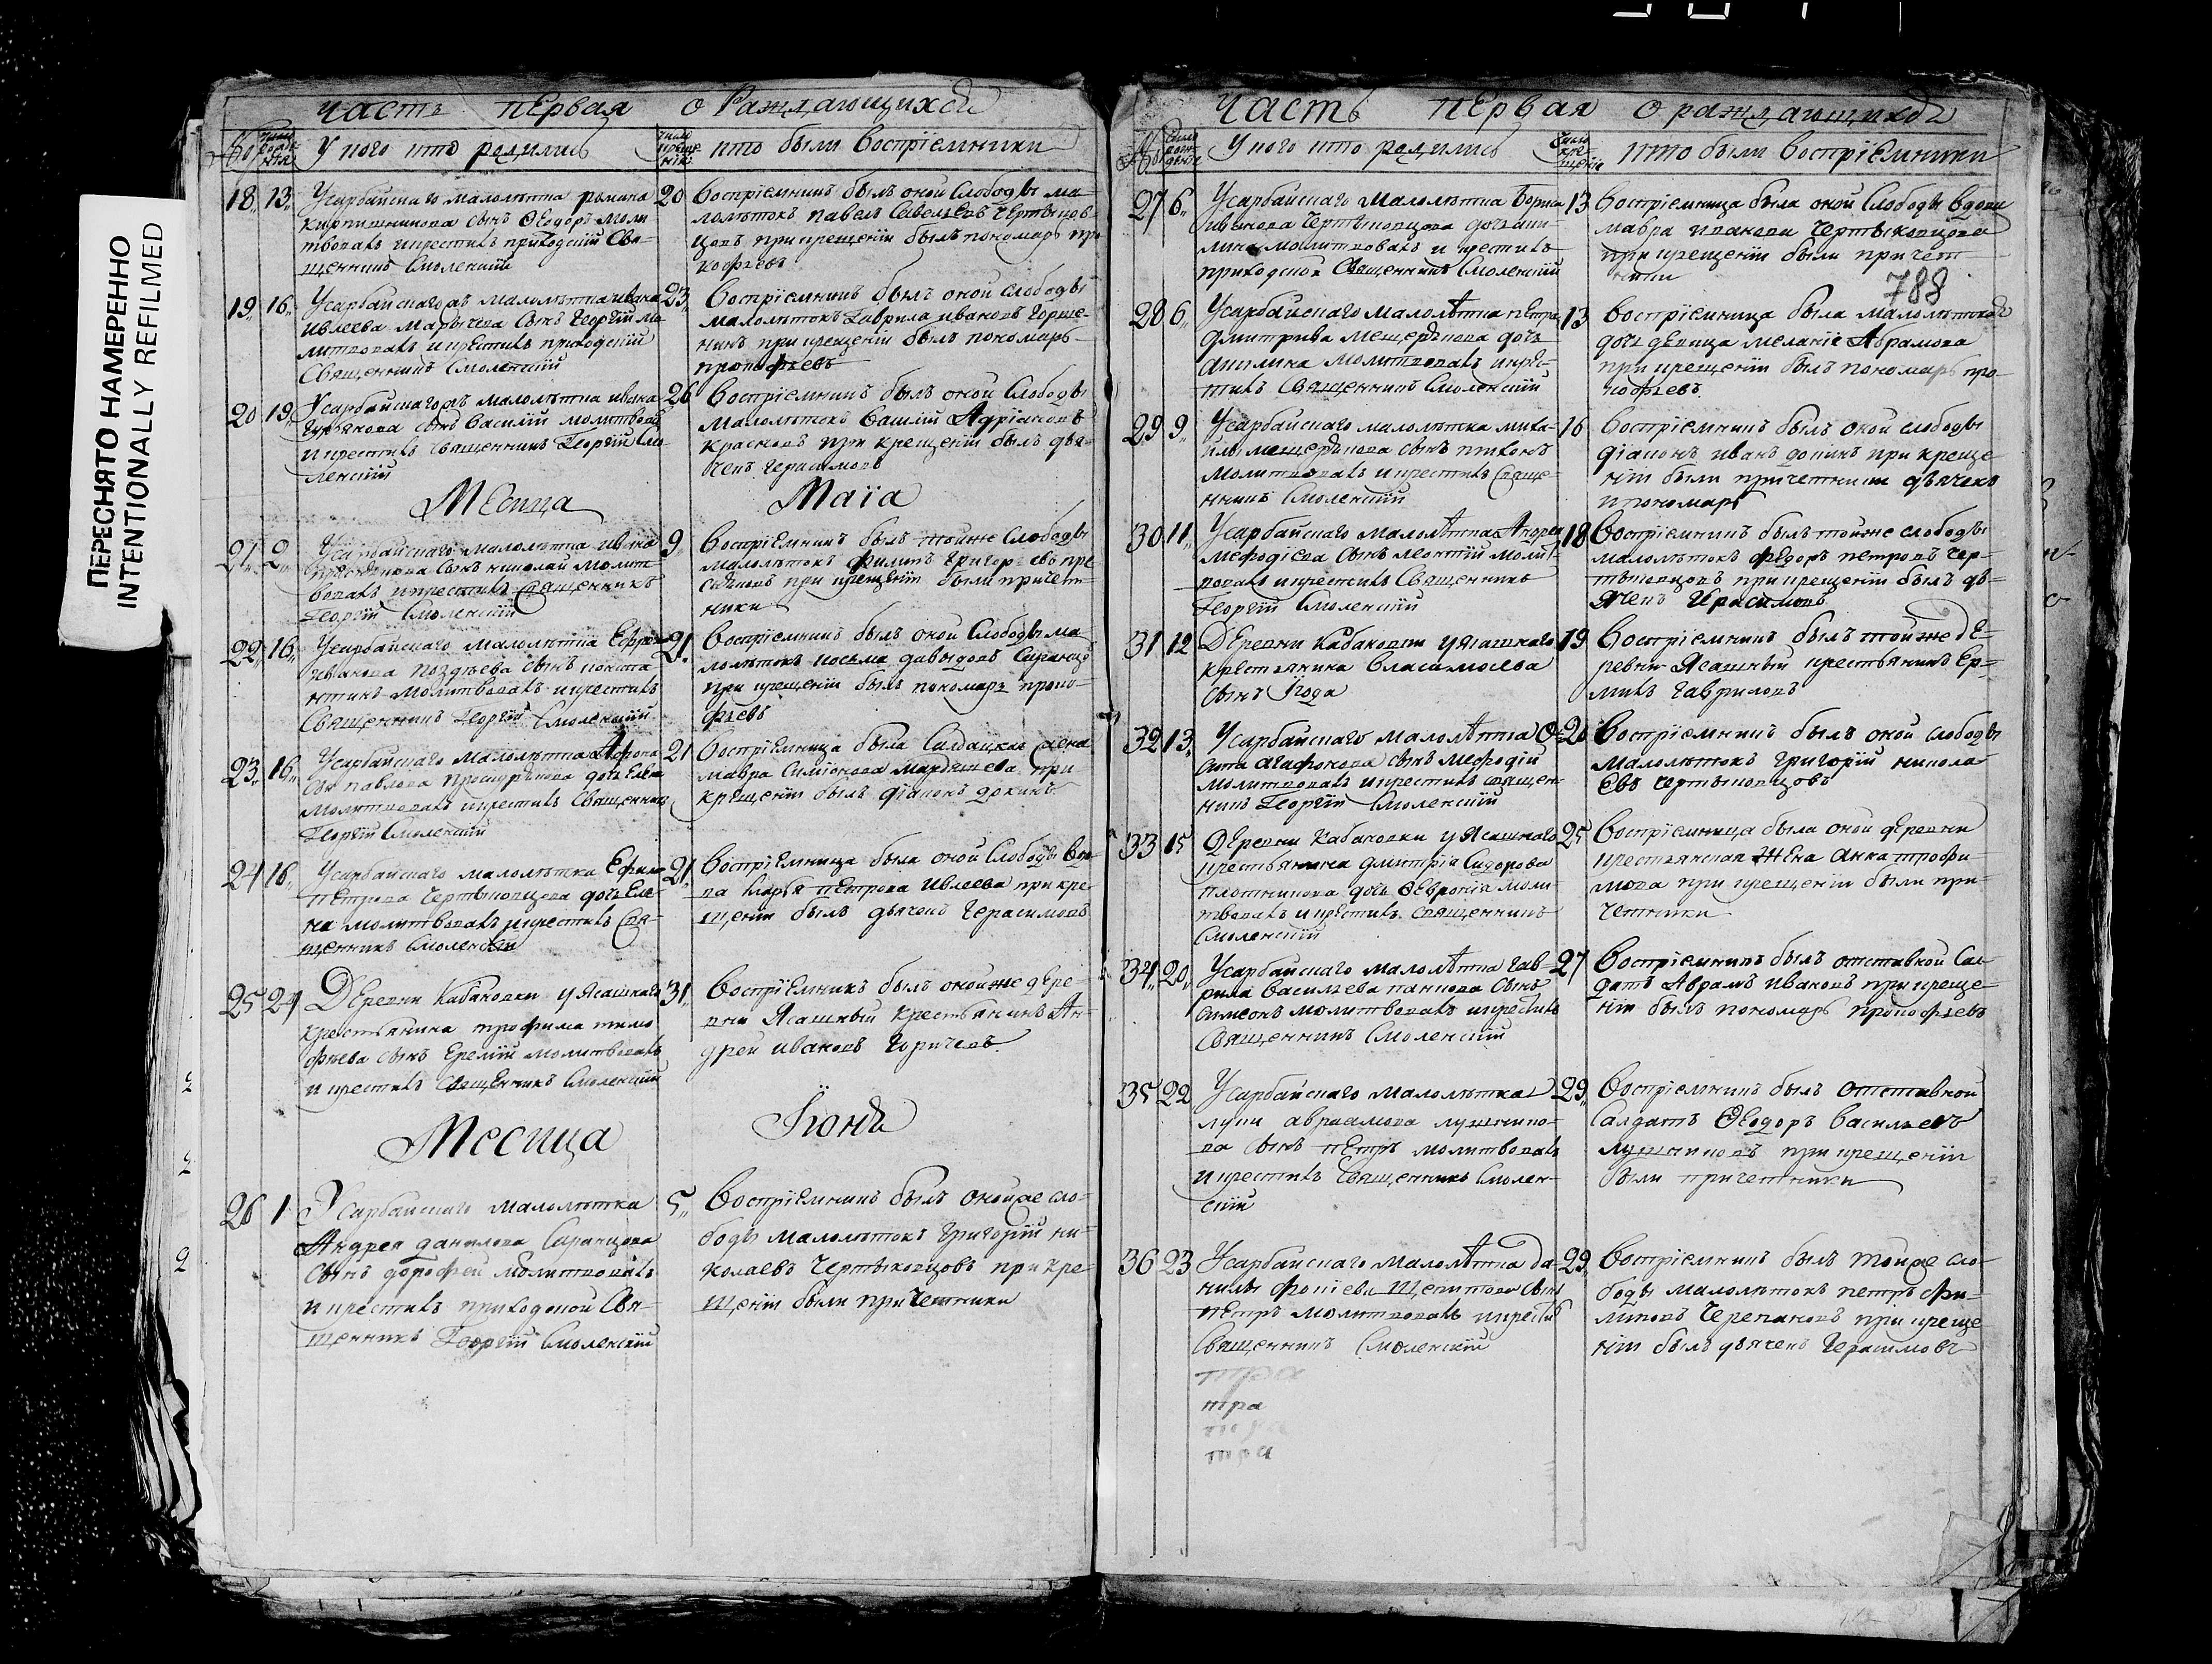 ПЕРЕСНЯТО НАМЕРЕННО
INTENTIONALLY REFILMED
часть первая о Раждающихся
У кого кто родились
кто были восприемники
18 13
Усарбайскаго малолѣтка романа
Кирпишникова сынъ Ѳеодоръ моли
твовалъ и крестилъ приходскій Свя-
щенникъ Смоленскій
20
Восприемникъ былъ оной Слободы ма-
лолѣтокъ павелъ
при крещеніи былъ пономарь про
кофьевъ
19 16
Усарбайскаго малолѣтка ивана
ивлеева сынъ Георгій мо
литвовалъ и крестилъ приходскій
Священникъ Смоленскій
23
Восприемникъ былъ оной слободы
малолѣтокъ Гаврила ивановъ
при крещеніи былъ пономарь
прокофьевъ
20 19
Усарбайскаго малолѣтка ивана
сынъ Василій молитвовалъ
и крестилъ священникъ Георгій Смо
ленскій
26
Восприемникъ былъ оной Слободы
малолѣтокъ Василій Адріановъ
Красновъ при крещеніи былъ дья
чекъ Герасимовъ
Месица Маіа
21 2
Усарбайскаго малолѣтка ивана
сынъ николай молит
вовалъ и крестилъ священникъ
Георгій Смоленскій
9
Восприемникъ былъ тойже Слободы
малолѣтокъ филипъ Григорьевъ
при крещеніи были причет
ники
22 16
Усарбайскаго малолѣтка
иванова поздѣева сынъ конста
нтинъ молитвовалъ и крестилъ
Священникъ Георгій Смоленскій
21
Восприемникъ былъ оной Слободы ма
лолѣтокъ косьма давыдовъ
при крещеніи былъ пономарь проко-
фьевъ
23 16
Усарбайскаго малолѣтка Афона
сья павлова проскурякова дочь Елена
молитвовалъ и крестилъ Священникъ
Георгій Смоленскій
21
Восприемница была Салдацкая жена
мавра Симіонова при
крещеніи былъ діаконъ
24 16
Усарбайскаго малолѣтка Ефима
петрова Чертыковцова дочь Еле-
на молитвовалъ и крестилъ Свя-
щенникъ Смоленскій
21
Восприемница была оной Слободы вдо-
ва Марья петрова Ивлеева при кре
щеніи былъ дьячекъ Герасимовъ
25 24
Деревни Кабановки у Ясашнаго
крестьянина трофима тимо
фѣева сынъ Еремій молитвовалъ
и крестилъ священникъ Смоленскій
31
Восприемникъ былъ онойже дере-
вни Ясашный Крестьянинъ Ан-
дрей ивановъ Горичевъ
Месица Іюня
26 1
Усарбайскаго малолѣтка
Андрея данилова Саранцова
сынъ дорофей молитвовалъ
и крестилъ приходской Свя-
щенникъ Георгій Смоленскій
5
Восприемникъ былъ онойже сло-
боды малолѣтокъ Григорій ни-
колаевъ Чертыковцовъ при кре-
щеніи были причетники
часть первая о раждающихся
У кого кто родились
кто были восприемники
27 6
Усарбайскаго малолѣтка Бориса
иванова Чертыковцова дочь аки-
лина молитвовалъ и крестилъ
приходской Священникъ Смоленскій
13
Восприемница была оной Слободы вдова
мавра иванова Чертыковцова
при крещеніи были причет
ники
788
28 6
Усарбайскаго малолѣтка петра
дмитрива мещерякова дочь
акилина молитвовалъ и кре-
тилъ Священникъ Смоленскій
13
восприемница была малолѣткова
дочь девица меланіе Абрамова
при крещеніи былъ пономарь про-
кофьевъ
29 9
Усарбайскаго малолѣтка миха-
йлы мещерякова сынъ
молитвовалъ и крестилъ Свяще-
нникъ Смоленскій
16
Восприемникъ былъ оной слободы
діаконъ иванъ при креще
ніи были причетники дьячекъ
и пономарь
30 11
Усарбайскаго малолѣтка Андрея
мефодіева сынъ леонтій молит-
вовалъ и крестилъ Священникъ
Георгій Смоленскій
18
Восприемникъ былъ тойже слободы
малолѣтокъ федоръ петровъ Чер-
тыковцовъ при крещеніи былъ дь-
ячекъ Герасимовъ
31 12
Деревни Кабановки у Ясашнаго
крестьянина Власа мосѣева
сынъ Іюда
19
Восприемникъ былъ тойже дЕ-
ревни Ясашный крестьянинъ Ер-
милъ Гавриловъ
32 13
Усарбайскаго малолѣтка
агафонова сынъ мефодій
молитвовалъ и крестилъ священ
никъ Георгій Смоленскій
20
Восприемникъ былъ оной слободы
малолѣтокъ Григорій никола
евъ Чертыковцовъ
33 15
Деревни Кабановки у Ясашнаго
крестьянина дмитріа Сидорова
плотникова дочь Ѳевронія моли
твовалъ и крестилъ священникъ
Смоленскій
25
Восприемница была оной деревни
крестьянская Жена анна трофи-
мова при крещеніи были при-
четники
34 20
Усарбайскаго малолѣтка гав-
рила васильева панкова сынъ
симеонъ молитвовалъ и крестилъ
Священникъ Смоленскій
27
Восприемникъ былъ отставной Сал
датъ Аврамъ Ивановъ при креще
ніи былъ пономарь прокофьевъ
35 22
Усарбайскаго малолѣтка
луки авраамова лушнико-
ва сынъ петръ молитвовалъ
и крестилъ Священникъ Смолен-
скій
29
Восприемникъ былъ отставной
Салдатъ Ѳеодоръ Васильевъ
лушниковъ при крещеніи
были причетники
36 23
Усарбайскаго малолѣтка да-
нилы фокіева сынъ
петръ молитвовалъ и крестилъ
Священникъ Смоленскій
29
Восприемникъ былъ тойже сло-
боды малолѣтокъ петръ фи-
липовъ Черепановъ при креще
ніи былъ дьячекъ Герасимовъ
тра